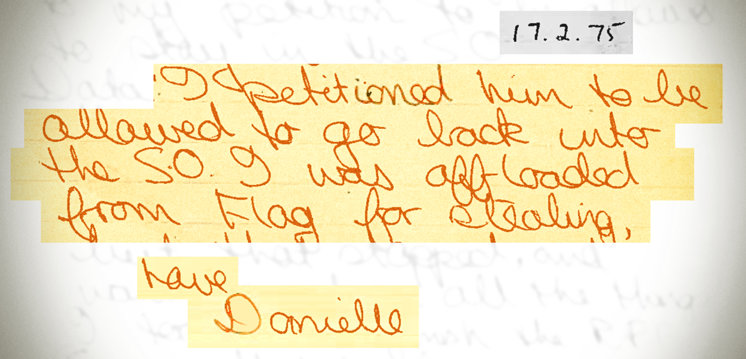 17.2.75
I petitioned him to be
allowed to go back into
the S.O. I was offloaded
from Flag for stealing,
have
Danielle